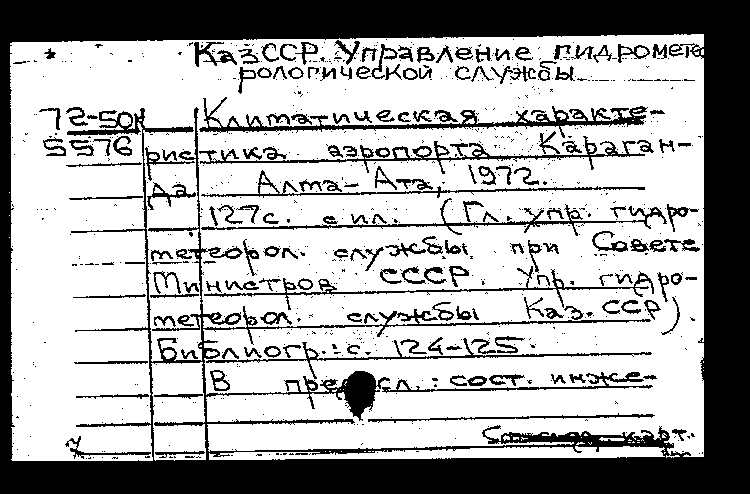 КазССР. Управление гидромете
рологической службы
72-50к Климатическая характе-
5576 ристика аэропорта Караган-
да Алма-Ата, 1972.
127с. с ил. (Гл. упр. гидро-
метеорол. службы при Совете
Министров СССР. Упр. гидро-
метеорол. службы Каз. ССР).
Библиогр.: с. 124-125.
В предисл.: сост. инже-
карт.